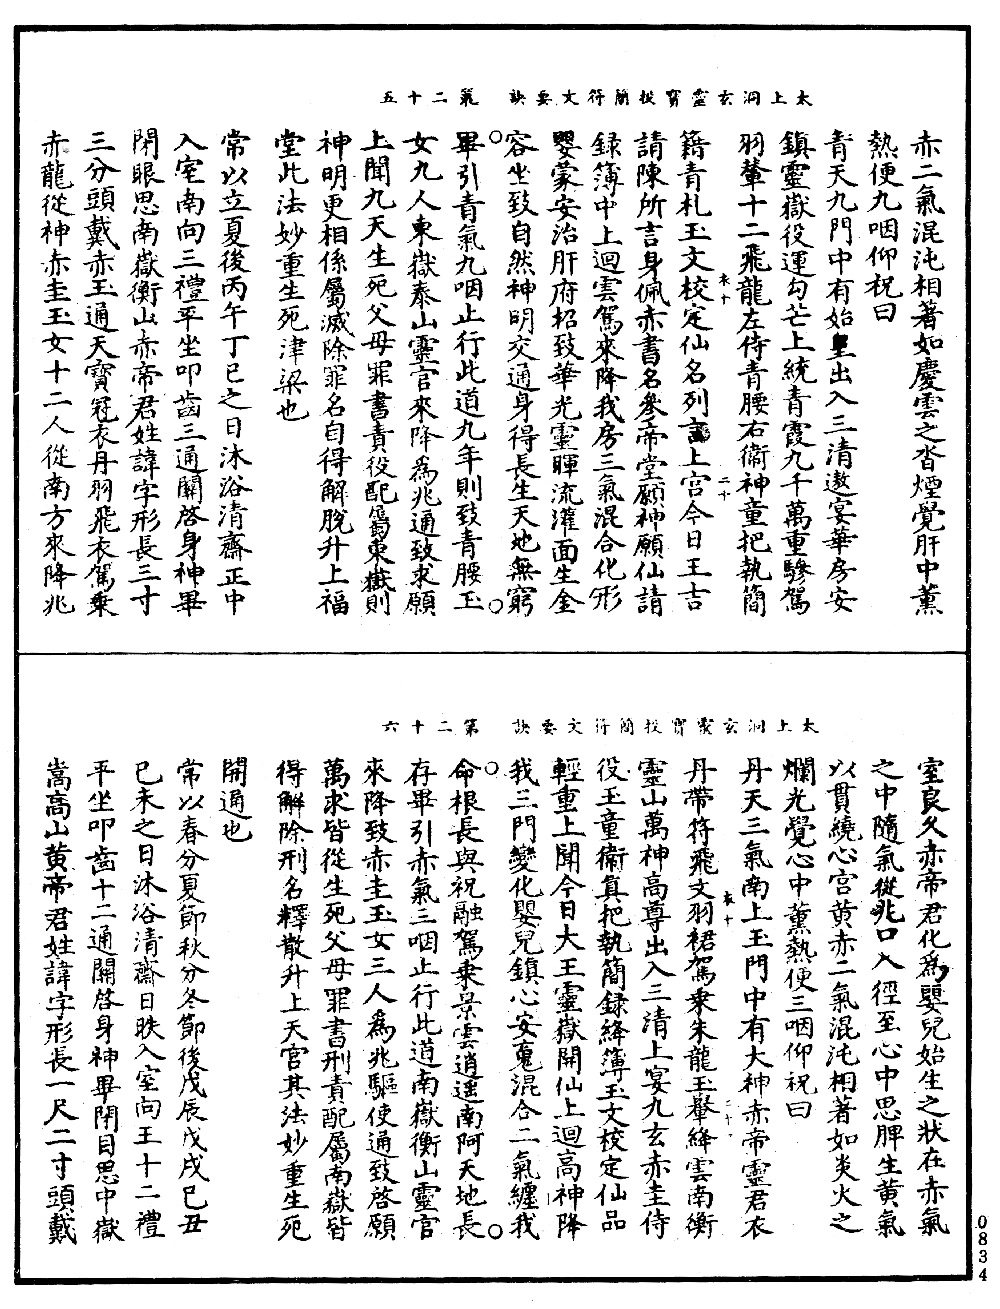 太上洞玄靈寶投簡符文要訣　第二十五
赤二氣混沌相著如慶雲之沓煙覺肝中薰
熱便九咽仰祝曰
青天九門中有始皇出入三清遨宴華房安
鎮靈嶽役運勾芒上統青霞九千萬重驂駕
羽輦十二飛龍左侍青腰右衛神童把執簡
籍青札玉文校定仙名列言上宮今日王吉
請陳所言身佩赤書名參帝堂願神願仙請
録簿中上迴雲駕來降我房三氣混合化形
嬰蒙安治肝府招致華光靈暉流灌面生金
容坐致自然神明交通身得長生天地無窮
畢引青氣九咽止行此道九年則致青腰玉
女九人東嶽泰山靈官來降為兆通致求願
上聞九天生死父母罪書責役配屬東嶽則
神明更相係屬滅除罪名自得解脫升上福
堂此法妙重生死津梁也
常以立夏後丙午丁巳之日沐浴清齋正中
入室南向三禮平坐叩齒三通關啓身神畢
閉眼思南嶽衡山赤帝君姓諱字形長三寸
三分頭戴赤玉通天寶冠衣丹羽飛衣駕乘
赤龍從神赤圭玉女十二人從南方來降兆
衣十
二十
太上洞玄靈寶投簡符文要訣　第二十六
室良久赤帝君化為嬰兒始生之狀在赤氣
之中隨氣從兆口入徑至心中思脾生黄氣
以貫繞心宮黄赤二氣混沌相著如炎火之
爛光覺心中薰熱便三咽仰祝曰
丹天三氣南上玉門中有大神赤帝靈君衣
丹帶符飛文羽裙駕乘朱龍玉轝絳雲南衡
靈山萬神高尊出入三清上宴九玄赤圭侍
役玉童衛真把執簡録絳簿玉文校定仙品
輕重上聞今日大王靈嶽開仙上迴高神降
我三門變化嬰兒鎮心安䰟混合二氣纏我
命根長與祝融駕乘景雲逍遥南阿天地長
存畢引赤氣三咽止行此道南嶽衡山靈官
來降致赤圭玉女三人為兆驅使通致啓願
萬求皆從生死父母罪書刑責配屬南嶽皆
得解除刑名釋散升上天宮其法妙重生死
開通也
常以春分夏節秋分冬節後戊辰戊戌巳丑
巳未之日沐浴清齋日昳入室向王十二禮
平坐叩齒十二通關啓身神畢閉目思中嶽
嵩高山黄帝君姓諱字形長一尺二寸頭戴
衣十
0834